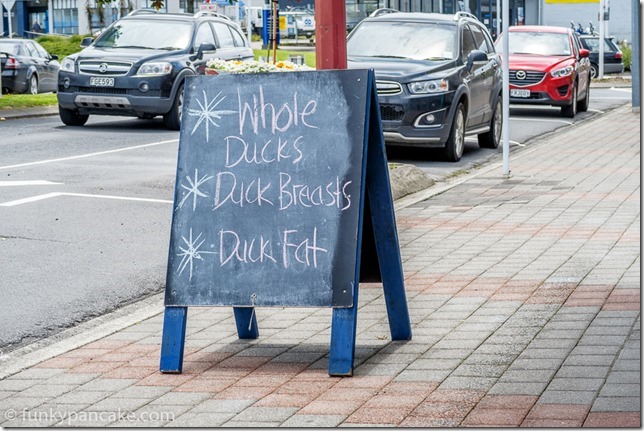 Whole
Ducks
Duck Breasts
Duck Fat
FGE593
© funkypancake.com